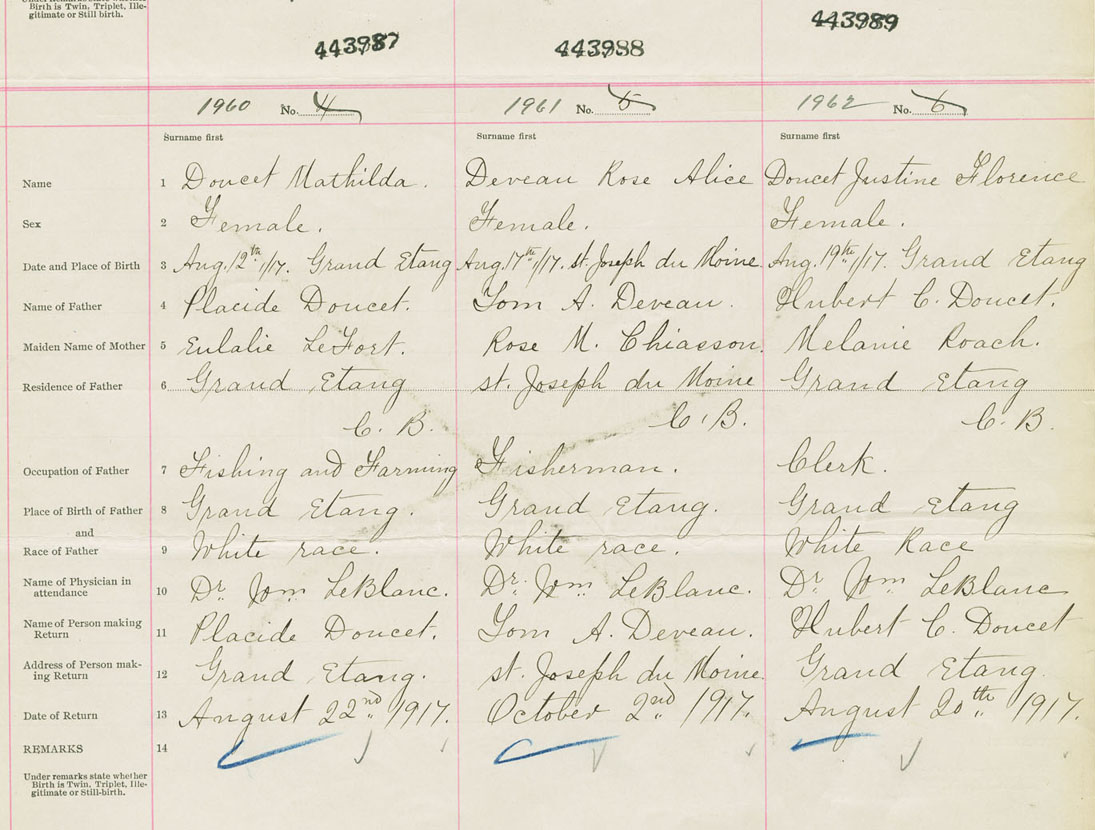 Under Remarks state whether
Birth is Twin, Triplet, Ille-
gitimate or Still birth.
443987 443988 443989
1960 No. 4 1961 No. 5 1962 No. 6
Surname first Surname first Surname first
Name 1 Doucet Mathilda. Deveau Rose Alice Doucet Justine Florence
Sex 2 Female. Female. Female.
Date and Place of Birth 3 Aug. 12th 1/17. Grand Etang Aug. 17th 1/17. st. Joseph du Moine. Aug. 19th 1/17. Grand Etang
Name of Father 4 Placide Doucet. Tom A. Deveau. Hubert C. Doucet.
Maiden Name of Mother 5 Eulalie LeFort. Rose M. Chiasson. Melanie Roach.
Residence of Father 6 Grand Etang st. Joseph du Moine Grand Etang
C. B. C. B. C. B.
Occupation of Father 7 Fishing and Farming Fisherman. Clerk.
Place of Birth of Father 8 Grand Etang. Grand Etang. Grand Etang
and
Race of Father 9 White race. White race. White Race
Name of Physician in
attendance 10 Dr. Wm. LeBlanc. Dr. Wm. LeBlanc. Dr. Wm. LeBlanc
Name of Person making
Return 11 Placide Doucet. Tom A. Deveau. Hubert C. Doucet
Address of Person mak-
ing Return 12 Grand Etang. st. Joseph du Moine. Grand Etang.
Date of Return 13 August 22nd 1917. October 2nd 1917. August 20th 1917.
REMARKS 14
Under remarks state whether
Birth is Twin, Triplet, Ille-
gitimate or Still-birth.